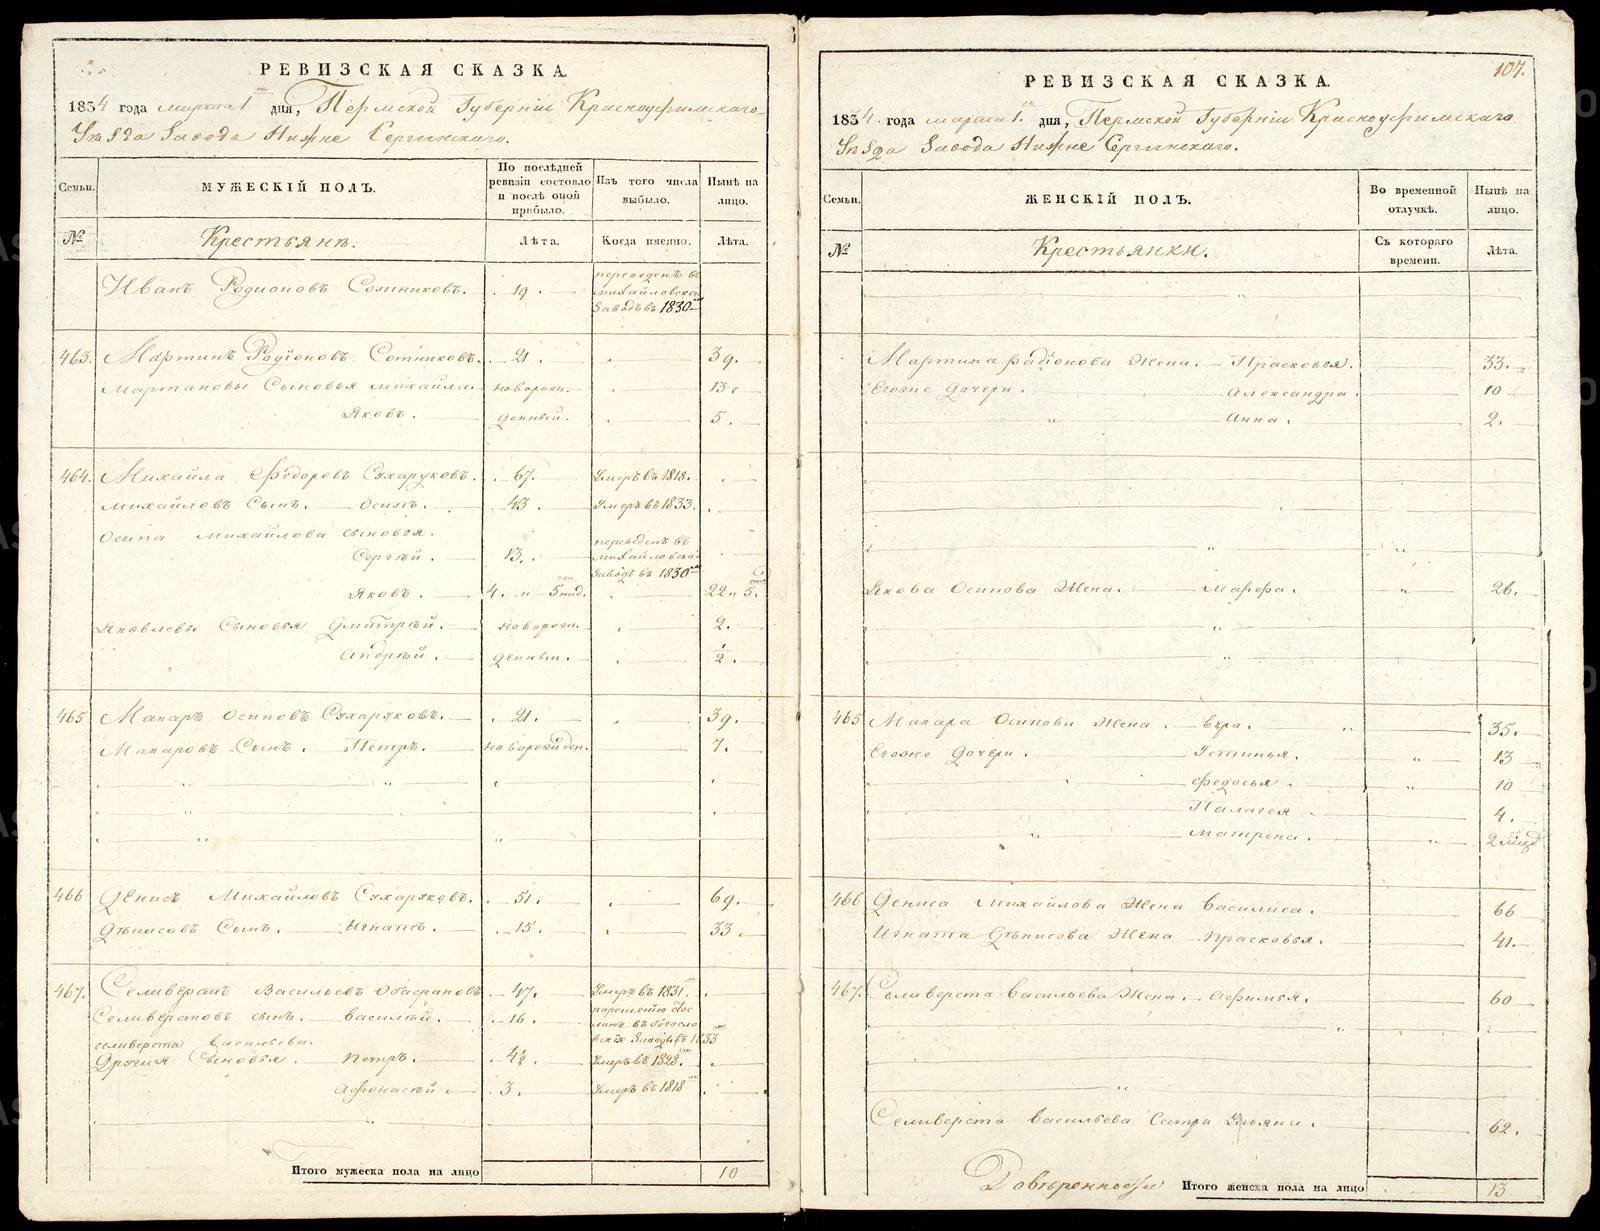 РЕВИЗСКАЯ СКАЗКА.
1834 года марта 1 дня, Пермской Губернiи Красноуфимскаго
Уѣзда Завода Нижне Сергинскаго.
Семьи. МУЖЕСКІЙ ПОЛЪ. По послѣдней ревизіи состояло и послѣ оной прибыло. Изъ того числа выбыло. Нынѣ на лицо.
№ Крестьянъ. Лѣта. Когда именно. Лѣта.
Иванъ Родионовъ Сотниковъ. 19. переведенъ въ
михайловской
заводъ въ 1830
463. Мартинъ Родіоновъ Сотниковъ. 21. 39.
Мартиновы Сыновья михайла. новорож. 13.
Яковъ. денный. 5.
464. Михайла Федоровъ Сухаруковъ. 67. Умеръ въ 1818.
михайловъ Сынъ. Осипъ. 43. Умеръ въ 1833.
Осипа михайлова сыновья.
Сергѣй. 13. переведенъ въ
михайловской
заводъ въ 1830
Яковъ. 4. и 5 мѣд. 22 и 5.
Яковлевы Сыновья Дмитрѣй. новорож. 2.
Андрѣй. денныи. ½.
465 Макаръ Осиповъ Сухаруковъ. 21. 39.
Макаровъ Сынъ. Петръ. новорожден. 7.
466 Денисъ Михайловъ Сухаруковъ. 51. 69.
Дѣнисовъ Сынъ. Игнатъ. 15. 33.
467. Селиверстъ Васильевъ 47. Умеръ въ 1831.
Селиверстовъ сынъ. василѣй. 16. порешению
въ 1833
селиверста васильева.
Другия Сыновья. петръ. 4½. Умеръ въ 1828.
Афонасѣй. 3. Умеръ въ 1818
Итого мужеска пола на лицо 10
107.
РЕВИЗСКАЯ СКАЗКА.
1834. года марта 1. дня, Пермской Губерніи Красноуфимскаго
Уѣзда Завода Нижне Сергинскаго.
Семьи. ЖЕНСКІЙ ПОЛЪ. Во временной отлучкѣ. Нынѣ на лицо.
№ Крестьянки. Съ котораго времени. Лѣта.
Мартина Радіонова Жена. Прасковья. 33.
Егоже дочери. Александра. 10
Анна. 2.
Якова Осипова Жена. Марфа. 26.
465 Макара Осипова Жена. вѣра. 35.
Егоже дочери. Устинья. 13
федосья. 10
Палагея 4.
матрена. 2
466 Дениса михайлова Жена василиса. 66
Игната Дѣнисова Жена прасковья. 41.
467. Селиверста васильева Жена. Афимья. 60
Селиверста васильева Сестра Ульяна. 62.
Довѣренной Итого женска пола на лицо 13